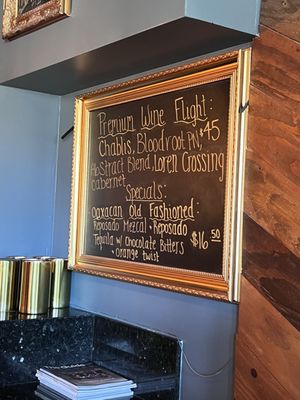 Premium Wine Flight:
Chablis, Bloodroot PN, $45
Abstract Blend, Loren Crossing
cabernet
Specials:
Oaxacan Old Fashioned:
Reposado Mezcal + Reposado
Tequila w/ Chocolate Bitters $16 50
+ orange twist